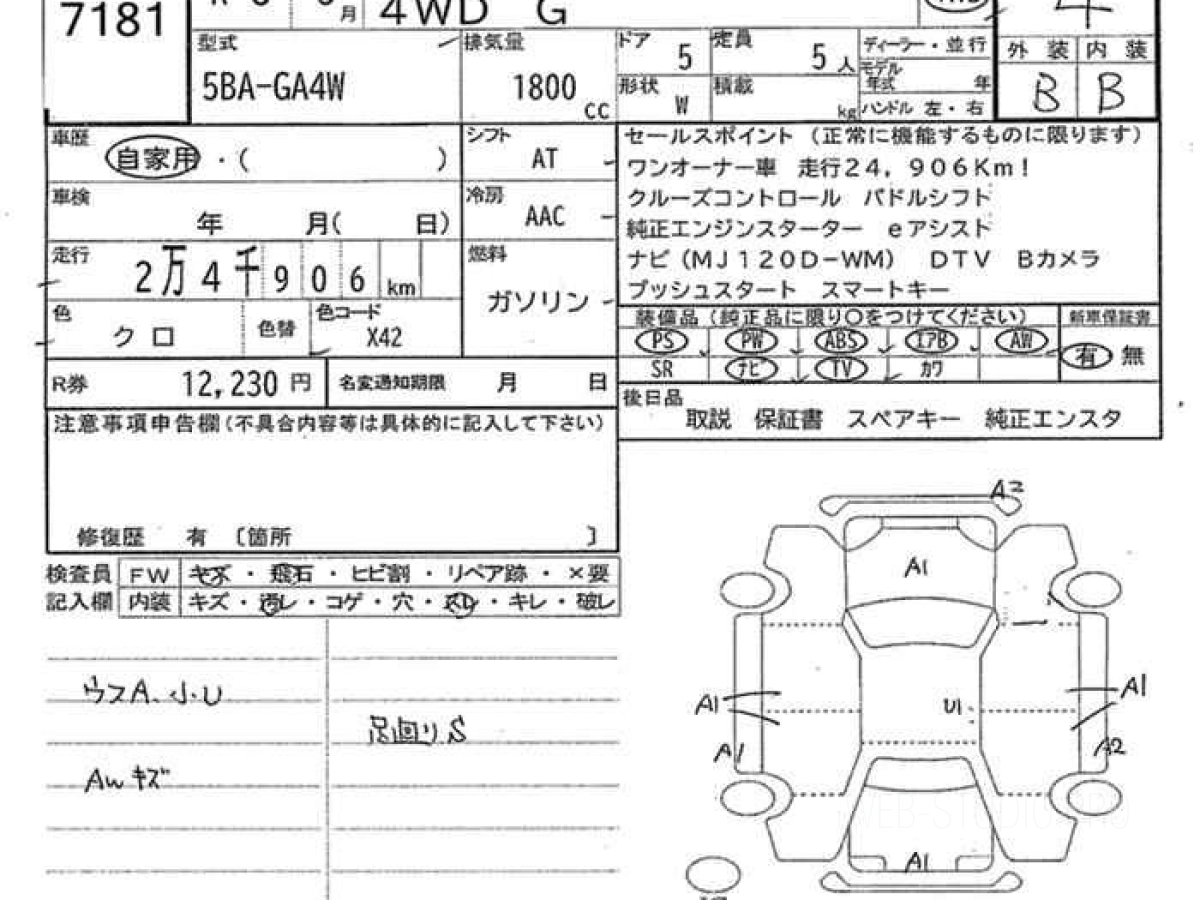 7181
月
4WD G
型式
5BA-GA4W
排気量
1800 cc
ドア
5
定員
5 人
形状
W
積載
kg
ディーラー・並行
モデル年式 年
ハンドル 左・右
外装 内装
B B
車歴
自家用・( )
シフト
AT
車検
年 月( 日)
冷房
AAC
走行
2万4千906km
燃料
ガソリン
色
クロ
色替
色コード
X42
R券 12,230円
名変通知期限 月 日
セールスポイント (正常に機能するものに限ります)
ワンオーナー車 走行24,906Km!
クルーズコントロール パドルシフト
純正エンジンスターター eアシスト
ナビ(MJ120D-WM) DTV Bカメラ
プッシュスタート スマートキー
装備品(純正品に限り○をつけてください)
新車保証書
PS PW ABS エアB AW
有 無
SR ナビ TV カワ
後日品
取説 保証書 スペアキー 純正エンスタ
注意事項申告欄(不具合内容等は具体的に記入して下さい)
修復歴 有 〔箇所 〕
検査員 FW キズ・飛石・ヒビ割・リペア跡・×要
記入欄 内装 キズ・汚レ・コゲ・穴・スレ・キレ・破レ
ウスA、小U
足回りS
Awキズ
A2
A1
A1
A1
U1
A1
A2
A1